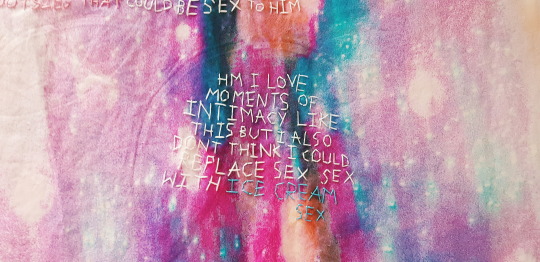 THAT COULD BE SEX TO HIM
HM I LOVE
MOMENTS OF
INTIMACY LIKE
THIS BUT I ALSO
DONT THINK I COULD
REPLACE SEX SEX
WITH ICE CREAM
SEX